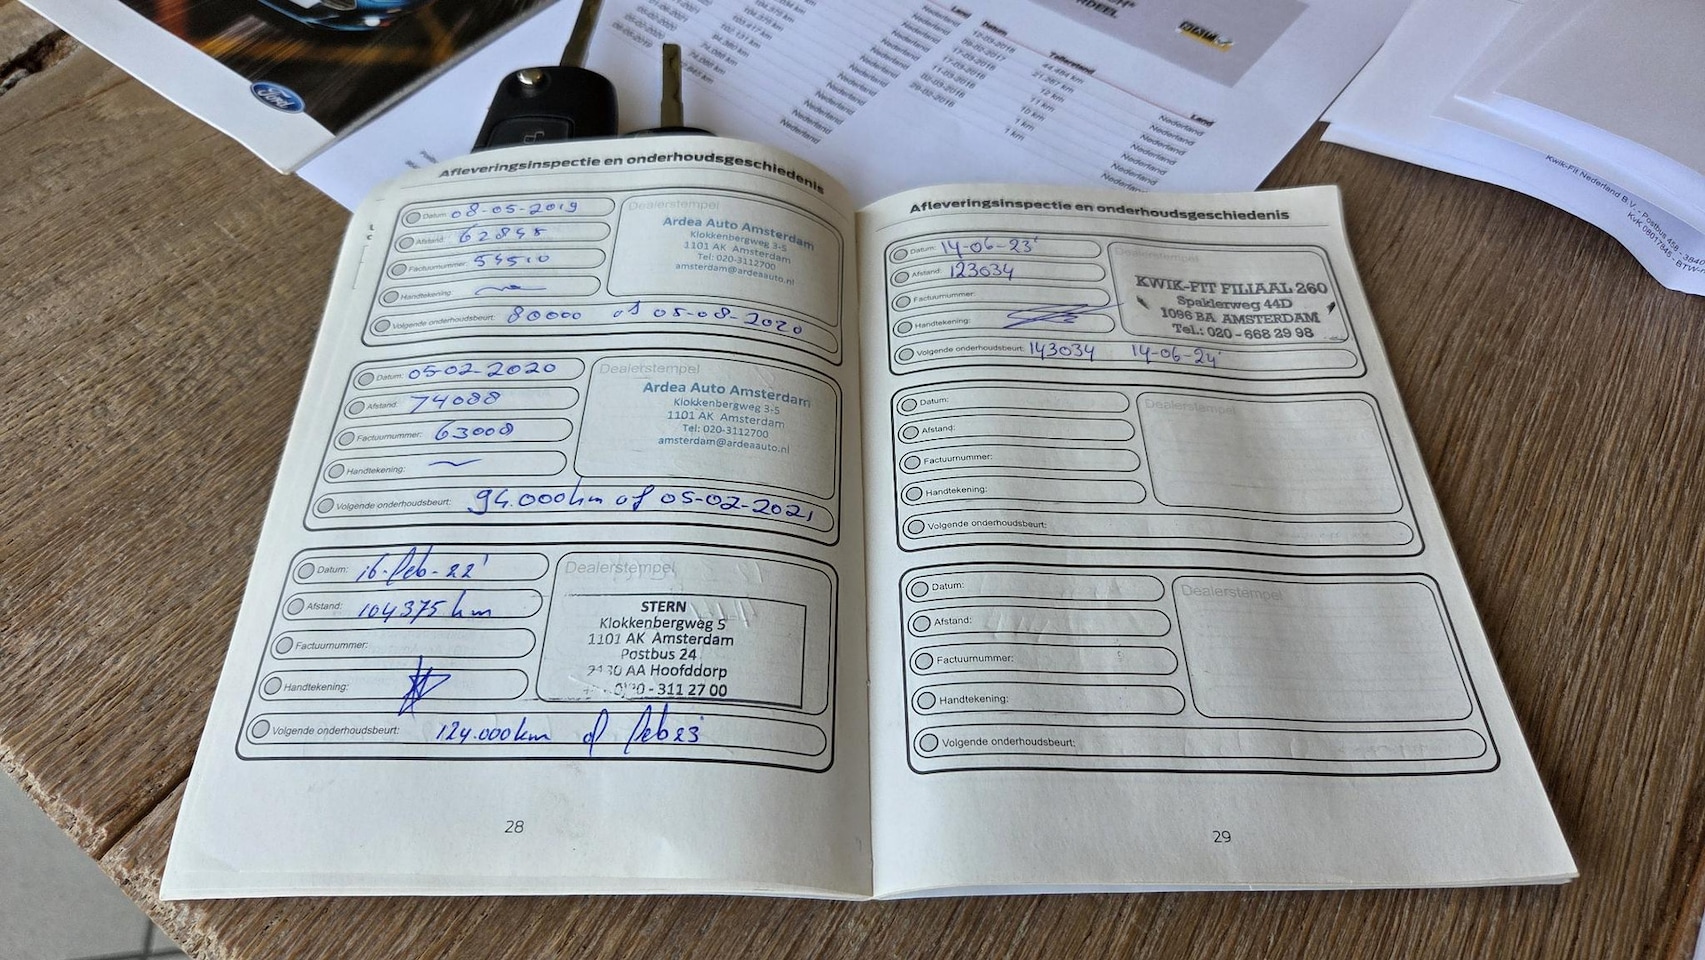 Ford
Land
Datum
Tellerstand
Land
Nederland
Nederland
Nederland
Nederland
Nederland
12-03-2018
44.484 km
09-02-2017
21.267 km
17-03-2016
12 km
11-03-2016
11 km
10 km
1 km
1 km
Nederland
Nederland
Nederland
Nederland
Nederland
Kwik-Fit Nederland B.V. - Postbus 458 - 3840
KvK 08017845 - BTW-n
Afleveringsinspectie en onderhoudsgeschiedenis
Datum: 08-05-2019
Afstand: 62845
Factuurnummer: 54510
Handtekening:
Volgende onderhoudsbeurt: 80000 of 05-08-2020
Dealerstempel
Ardea Auto Amsterdam
Klokkenbergweg 3-5
1101 AK Amsterdam
Tel: 020-3112700
amsterdam@ardeaauto.nl
Datum: 05-02-2020
Afstand: 74088
Factuurnummer: 63008
Handtekening:
Volgende onderhoudsbeurt: 94.000km of 05-02-2021
Dealerstempel
Ardea Auto Amsterdam
Klokkenbergweg 3-5
1101 AK Amsterdam
Tel: 020-3112700
amsterdam@ardeaauto.nl
Datum: 16-feb-22'
Afstand: 104375 km
Factuurnummer:
Handtekening:
Volgende onderhoudsbeurt: 124.000km of feb 23'
Dealerstempel
STERN
Klokkenbergweg 5
1101 AK Amsterdam
Postbus 24
2130 AA Hoofddorp
020 - 311 27 00
28
Afleveringsinspectie en onderhoudsgeschiedenis
Datum: 14-06-23'
Afstand: 123034
Factuurnummer:
Handtekening:
Volgende onderhoudsbeurt: 143034 14-06-24'
Dealerstempel
KWIK-FIT FILIAAL 260
Spaklerweg 44D
1096 BA AMSTERDAM
Tel.: 020 - 668 29 98
Datum:
Afstand:
Factuurnummer:
Handtekening:
Volgende onderhoudsbeurt:
Dealerstempel
Datum:
Afstand:
Factuurnummer:
Handtekening:
Volgende onderhoudsbeurt:
Dealerstempel
29